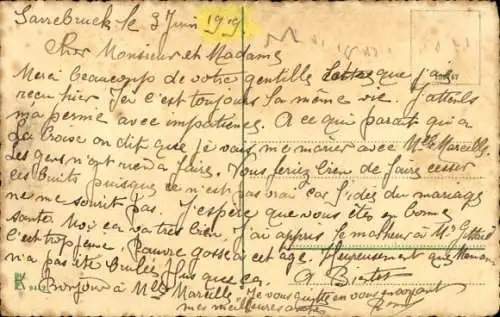 Sarrebruck le 3 Juin 1919.
Cher Monsieur et Madame
Merci beaucoup de votre gentille lettre que j'ai
reçu hier. Ici c'est toujours la même vie. J'attends
ma permie avec impatience. A ce qui parait qu'a
La Croise on dit que je vais me marier avec Mlle Marseille.
Les gens n'ont rien à faire. Vous feriez bien de faire cesser
ces bruits puisque ce n'est pas vrai car l'idée du mariage
ne me sourit pas. J'espère que vous êtes en bonne
santé. Moi ça va très bien. J'ai appris le malheur à Mr
c'est trop jeune. Pauvre gosse à cet âge. Heureusement que Maman
n'a pas été brulée plus que ça. A Bientot
Bonjour à Mlle Marseille. Je vous quitte en vous envoyant
mes meilleures